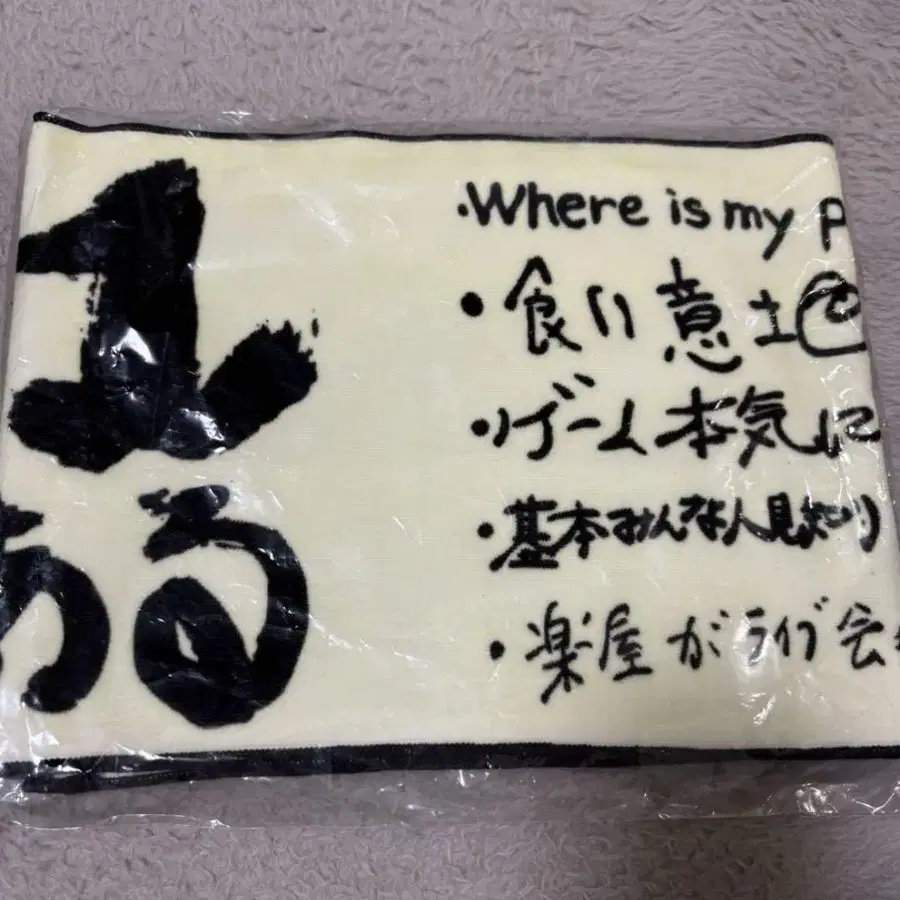 る
・Where is my P
・食い意地
・ゲーム本気に
・基本みんな人見知り
・楽屋がライブ会